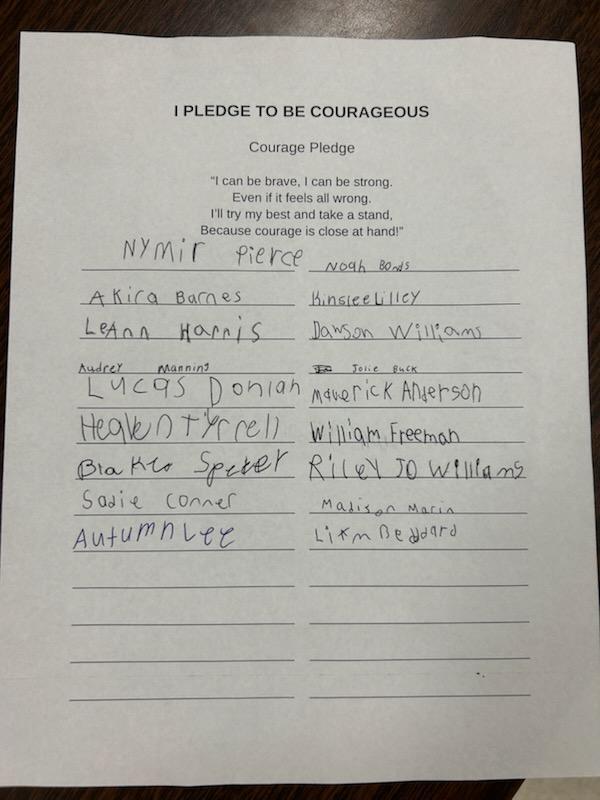 I PLEDGE TO BE COURAGEOUS
Courage Pledge
"I can be brave, I can be strong.
Even if it feels all wrong.
I'll try my best and take a stand,
Because courage is close at hand!"
Nymir Pierce
Noah Bonds
Akira Barnes
Kinslee Lilley
LeAnn Harris
Dawson Williams
Audrey Manning
Jolie Buck
Lucas Donlan
Maverick Anderson
Heaven Tyrrell
William Freeman
Riley JO Williams
Sadie Conner
Madison Marin
Autumn Lee
Liam Beddard